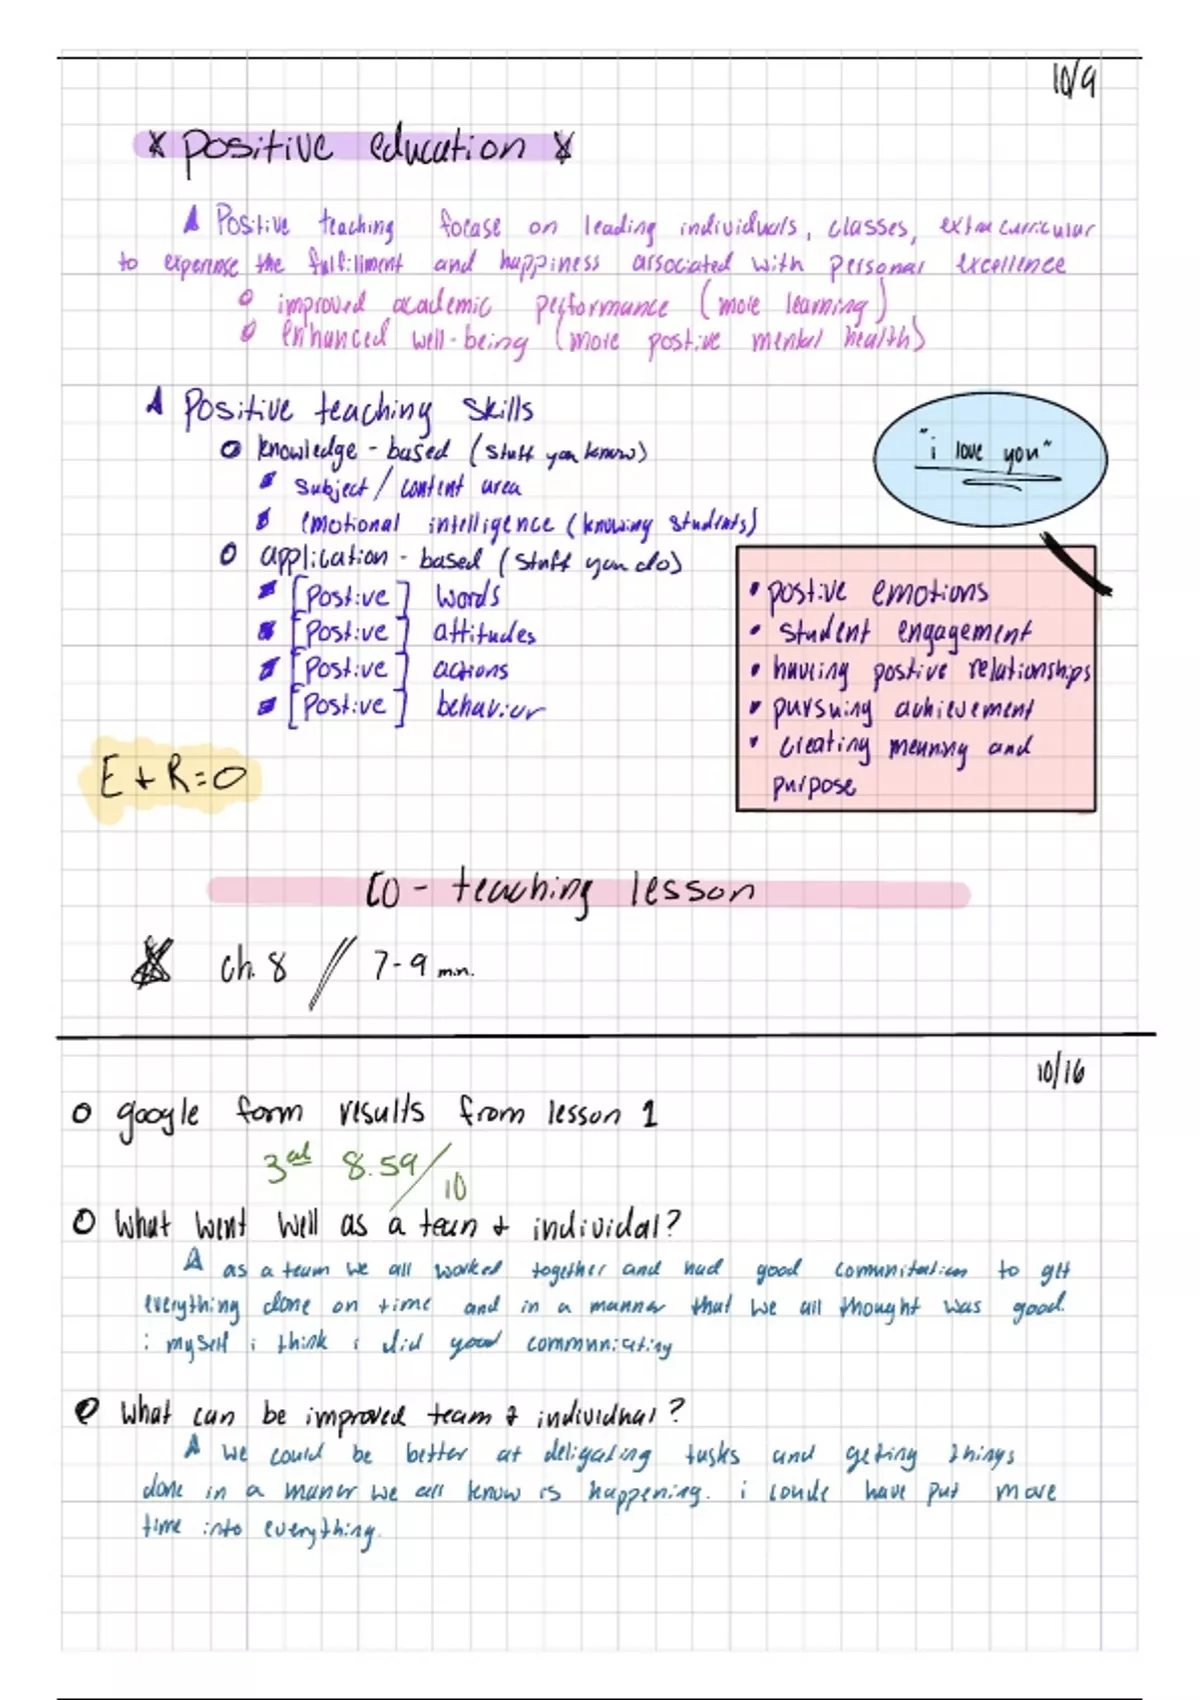 10/9
* positive education *
Positive teaching focase on leading individuals, classes, extracurricular
to experense the fulfillment and happiness associated with personal excellence
improved academic performance (more learning)
enhanced well-being (more postive mental health)
Positive teaching skills
knowledge-based (stuff you know)
subject/content area
emotional intelligence (knowing students)
"i love you"
application-based (stuff you do)
[Postive] words
[Postive] attitudes
[Postive] actions
[Postive] behavior
• postive emotions
• student engagement
• having postive relationships
• pursuing achievement
• creating meaning and
purpose
E + R = O
co-teaching lesson
ch. 8 // 7-9 min.
10/16
google form results from lesson 1
8.59/10
What went well as a team + individal?
as a team we all worked together and had good comunitation to get
everything done on time and in a manner that we all thought was good.
myself i think i did good communicating
What can be improved team & individual?
we could be better at deligating tasks and geting things
done in a maner we all know is happening. i could have put more
time into everything.